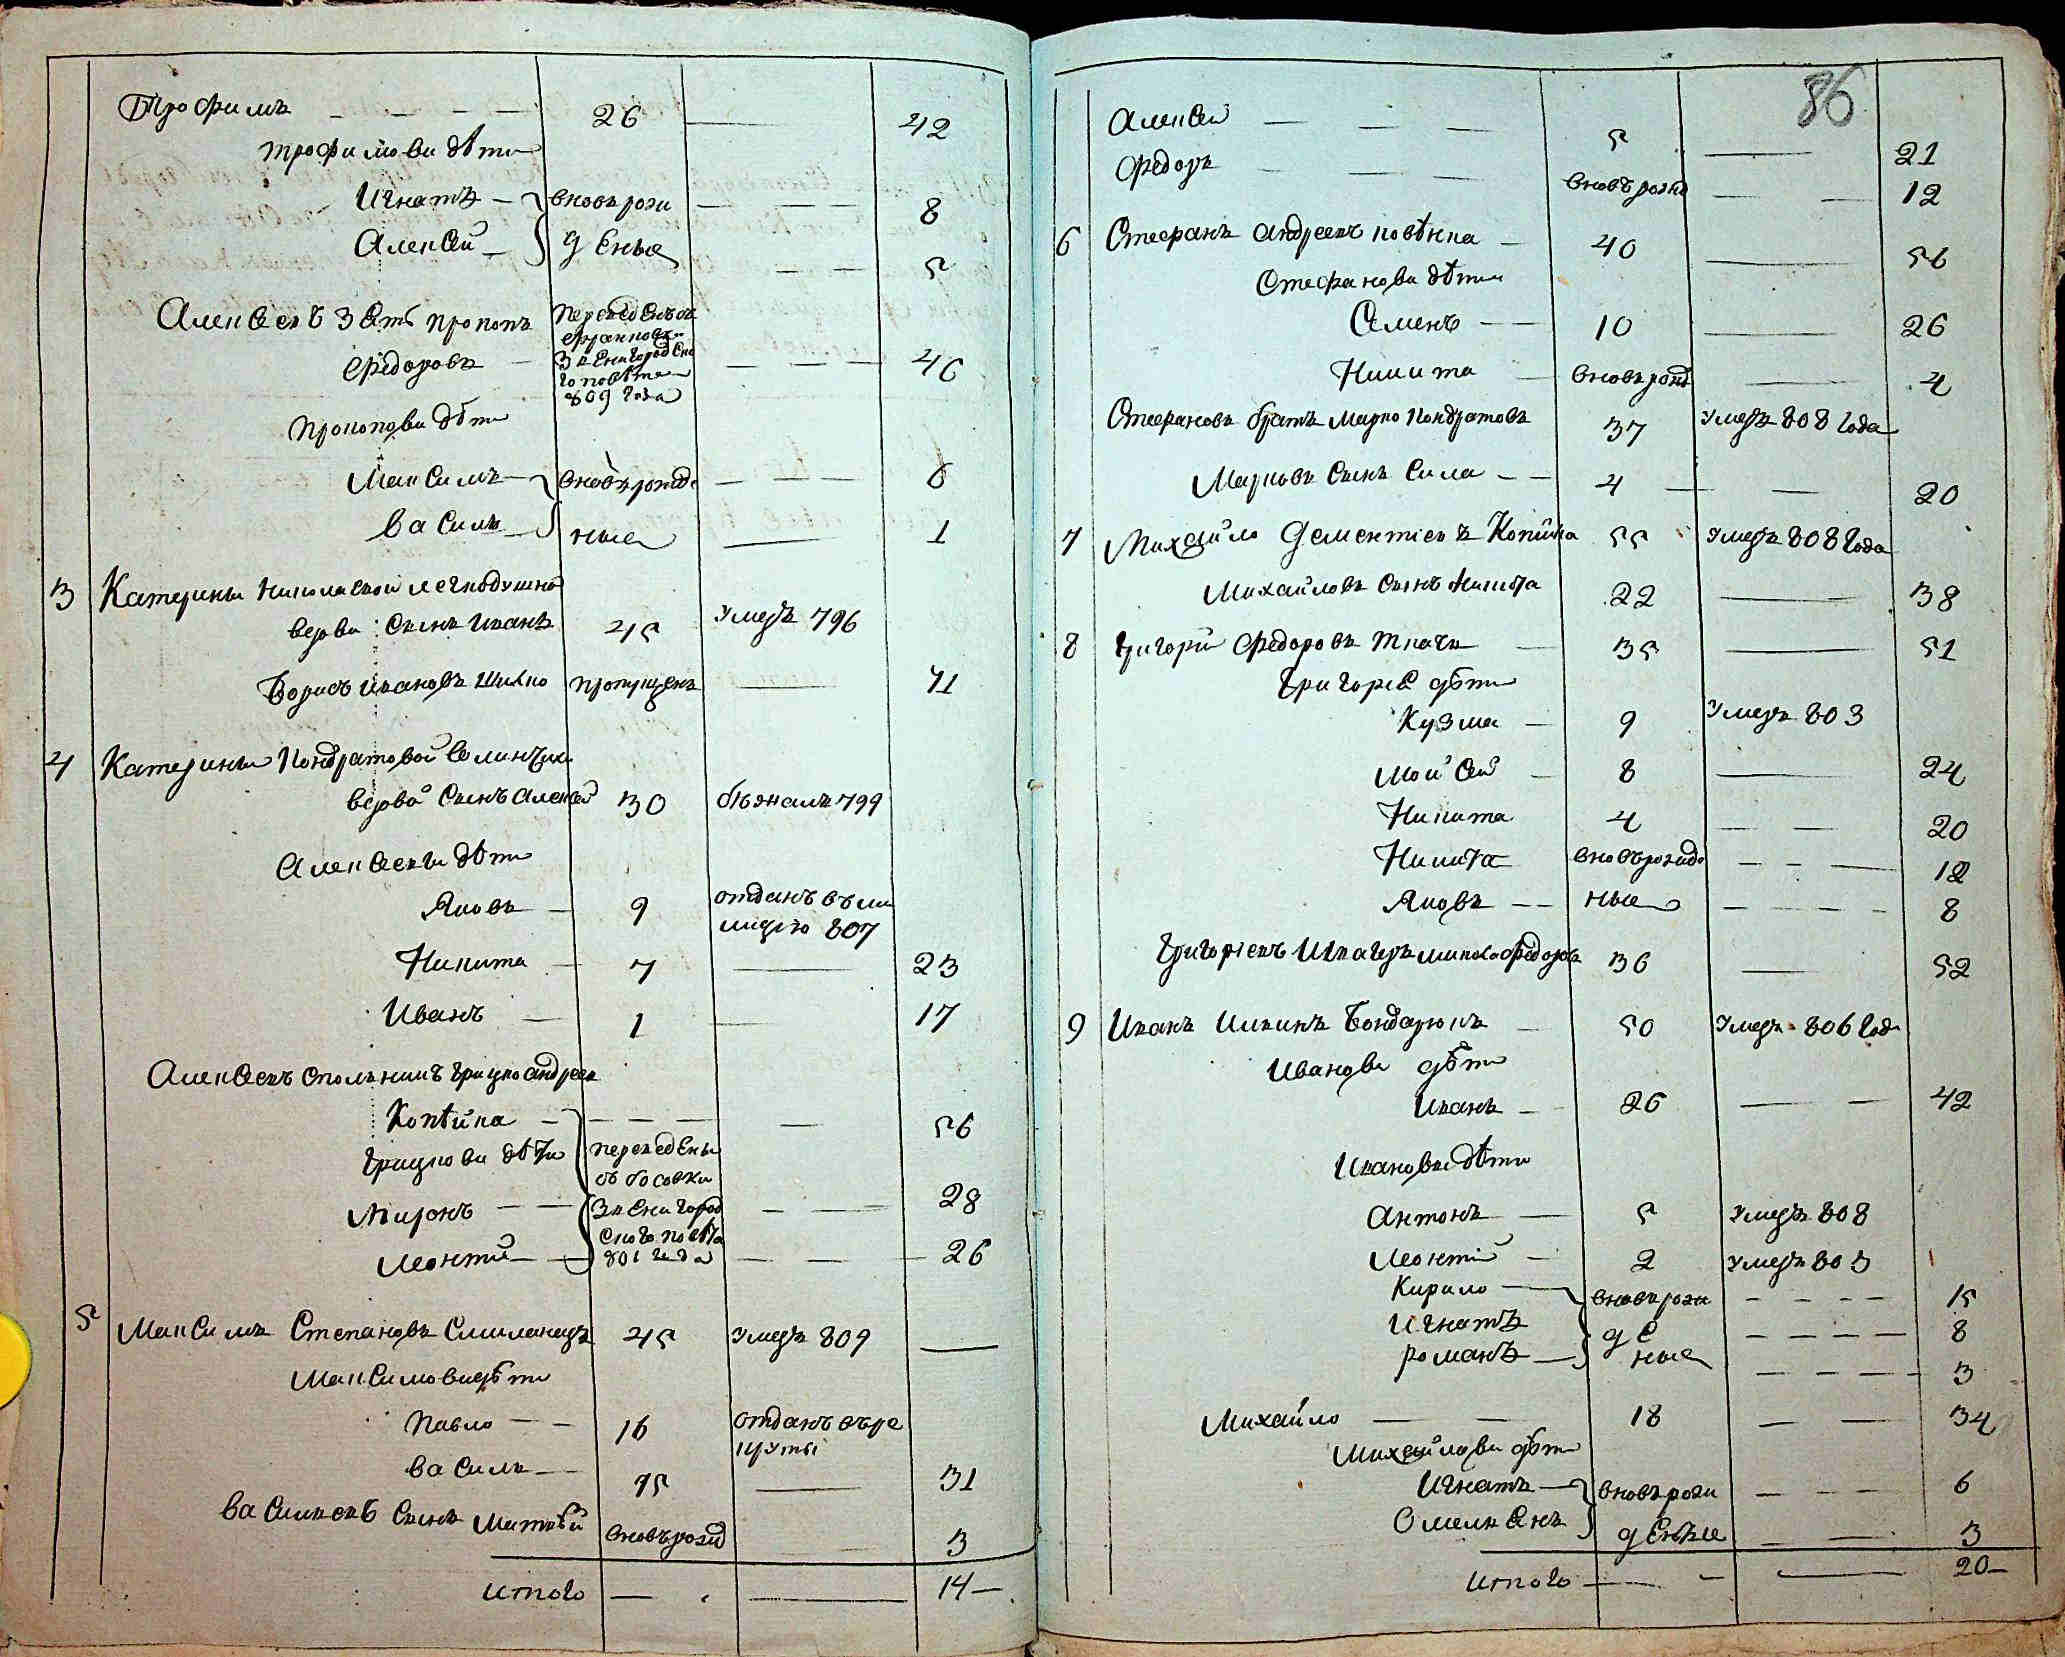 Трофимъ — — — — 26 — 42
трофимови дѣти
Игнатъ — вновь рож — — — 8
Алексѣй — деные — — — 5
Алексѣевъ зять прокопъ переведенъ съ
Федоровъ — звенигородско
го повѣта — — — 46
809 года
прокопови дѣти
Максимъ — вновь рожде — — — 6
василь — ные — 1
3 Катерины николаевой легкодушно
вдови сынъ иванъ 45 умеръ 796
Борисъ ивановъ шихно пропущенъ — 71
4 Катерины кондратовой
вдови сынъ алексѣй 30 бѣжалъ 799
Алексѣеви дѣти
Яковъ — 9 отданъ въ ми
лицію 807
Никита — 7 — 23
Иванъ — 1 — 17
Алексѣевъ грицко андреевъ
Копѣйка — — — — — 56
грицкови дѣти переведены
съ босовки
миронъ — — звенигород — — — 28
ского повѣта
леонтій — 801 года — — — 26
5 Максимъ Степановъ Смилянецъ 45 умеръ 809 —
Максимови дѣти
павло — — 16 отданъ въ ре
круты
василь — 15 — 31
василіевъ сынъ матвѣй вновь рожд — 3
итого — — 14 —
86
Алексѣй — — — 5 — 21
Федоръ — — — вновь рожд — — 12
6 Стефанъ андреевъ повѣнка — 40 — 56
Стефанови дѣти
Семенъ — 10 — 26
Никита — вновь рожд — 4
Стефановъ братъ марко кондратовъ 37 умеръ 808 года
Марковъ сынъ сила — — 4 — — 20
7 Михайло дементіевъ Копѣйка 55 умеръ 808 года
Михайловъ сынъ никита 22 — 38
8 григорій федоровъ ткачъ — 35 — 51
григоріе дѣти
Кузма — 9 умеръ 803
мойсей — 8 — 24
Никита 4 — — 20
Никита вновь рожде — — — 12
Яковъ — — ные — — — — 8
Григоріевъ швагеръ федоровъ 36 — 52
9 Иванъ Бондарюкъ — 50 умеръ 806 год
Иванови дѣти
Иванъ — 26 — — 42
Иванови дѣти
Антонъ — 5 умеръ 808
леонтій — 2 умеръ 803
Кирило — вновь рож — — — — 15
Игнатъ де — — — — 8
романъ — ные — — — — 3
Михайло — — 18 — — 34
Михайлови дѣти
Игнатъ — вновь рож — — — 6
Омельянъ деные — — 3
итого — — — 20 —